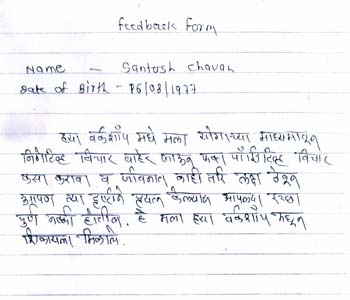 feedback form
Name - Santosh Chavan
Date of Birth - 16/08/1977
ह्या वर्कशॉप मधे मला योगाच्या माध्यमातून
निगेटिव्ह विचार बाहेर जाऊन फक्त पॉझिटिव्ह विचार
कसा करावा व जीवनात काही तरी लक्ष ठेवून
आपण त्या दृष्टीने प्रयत्न केल्यास आपल्या इच्छा
पुर्ण नक्की होतील. हे मला ह्या वर्कशॉप मधून
शिकायला मिळाले.